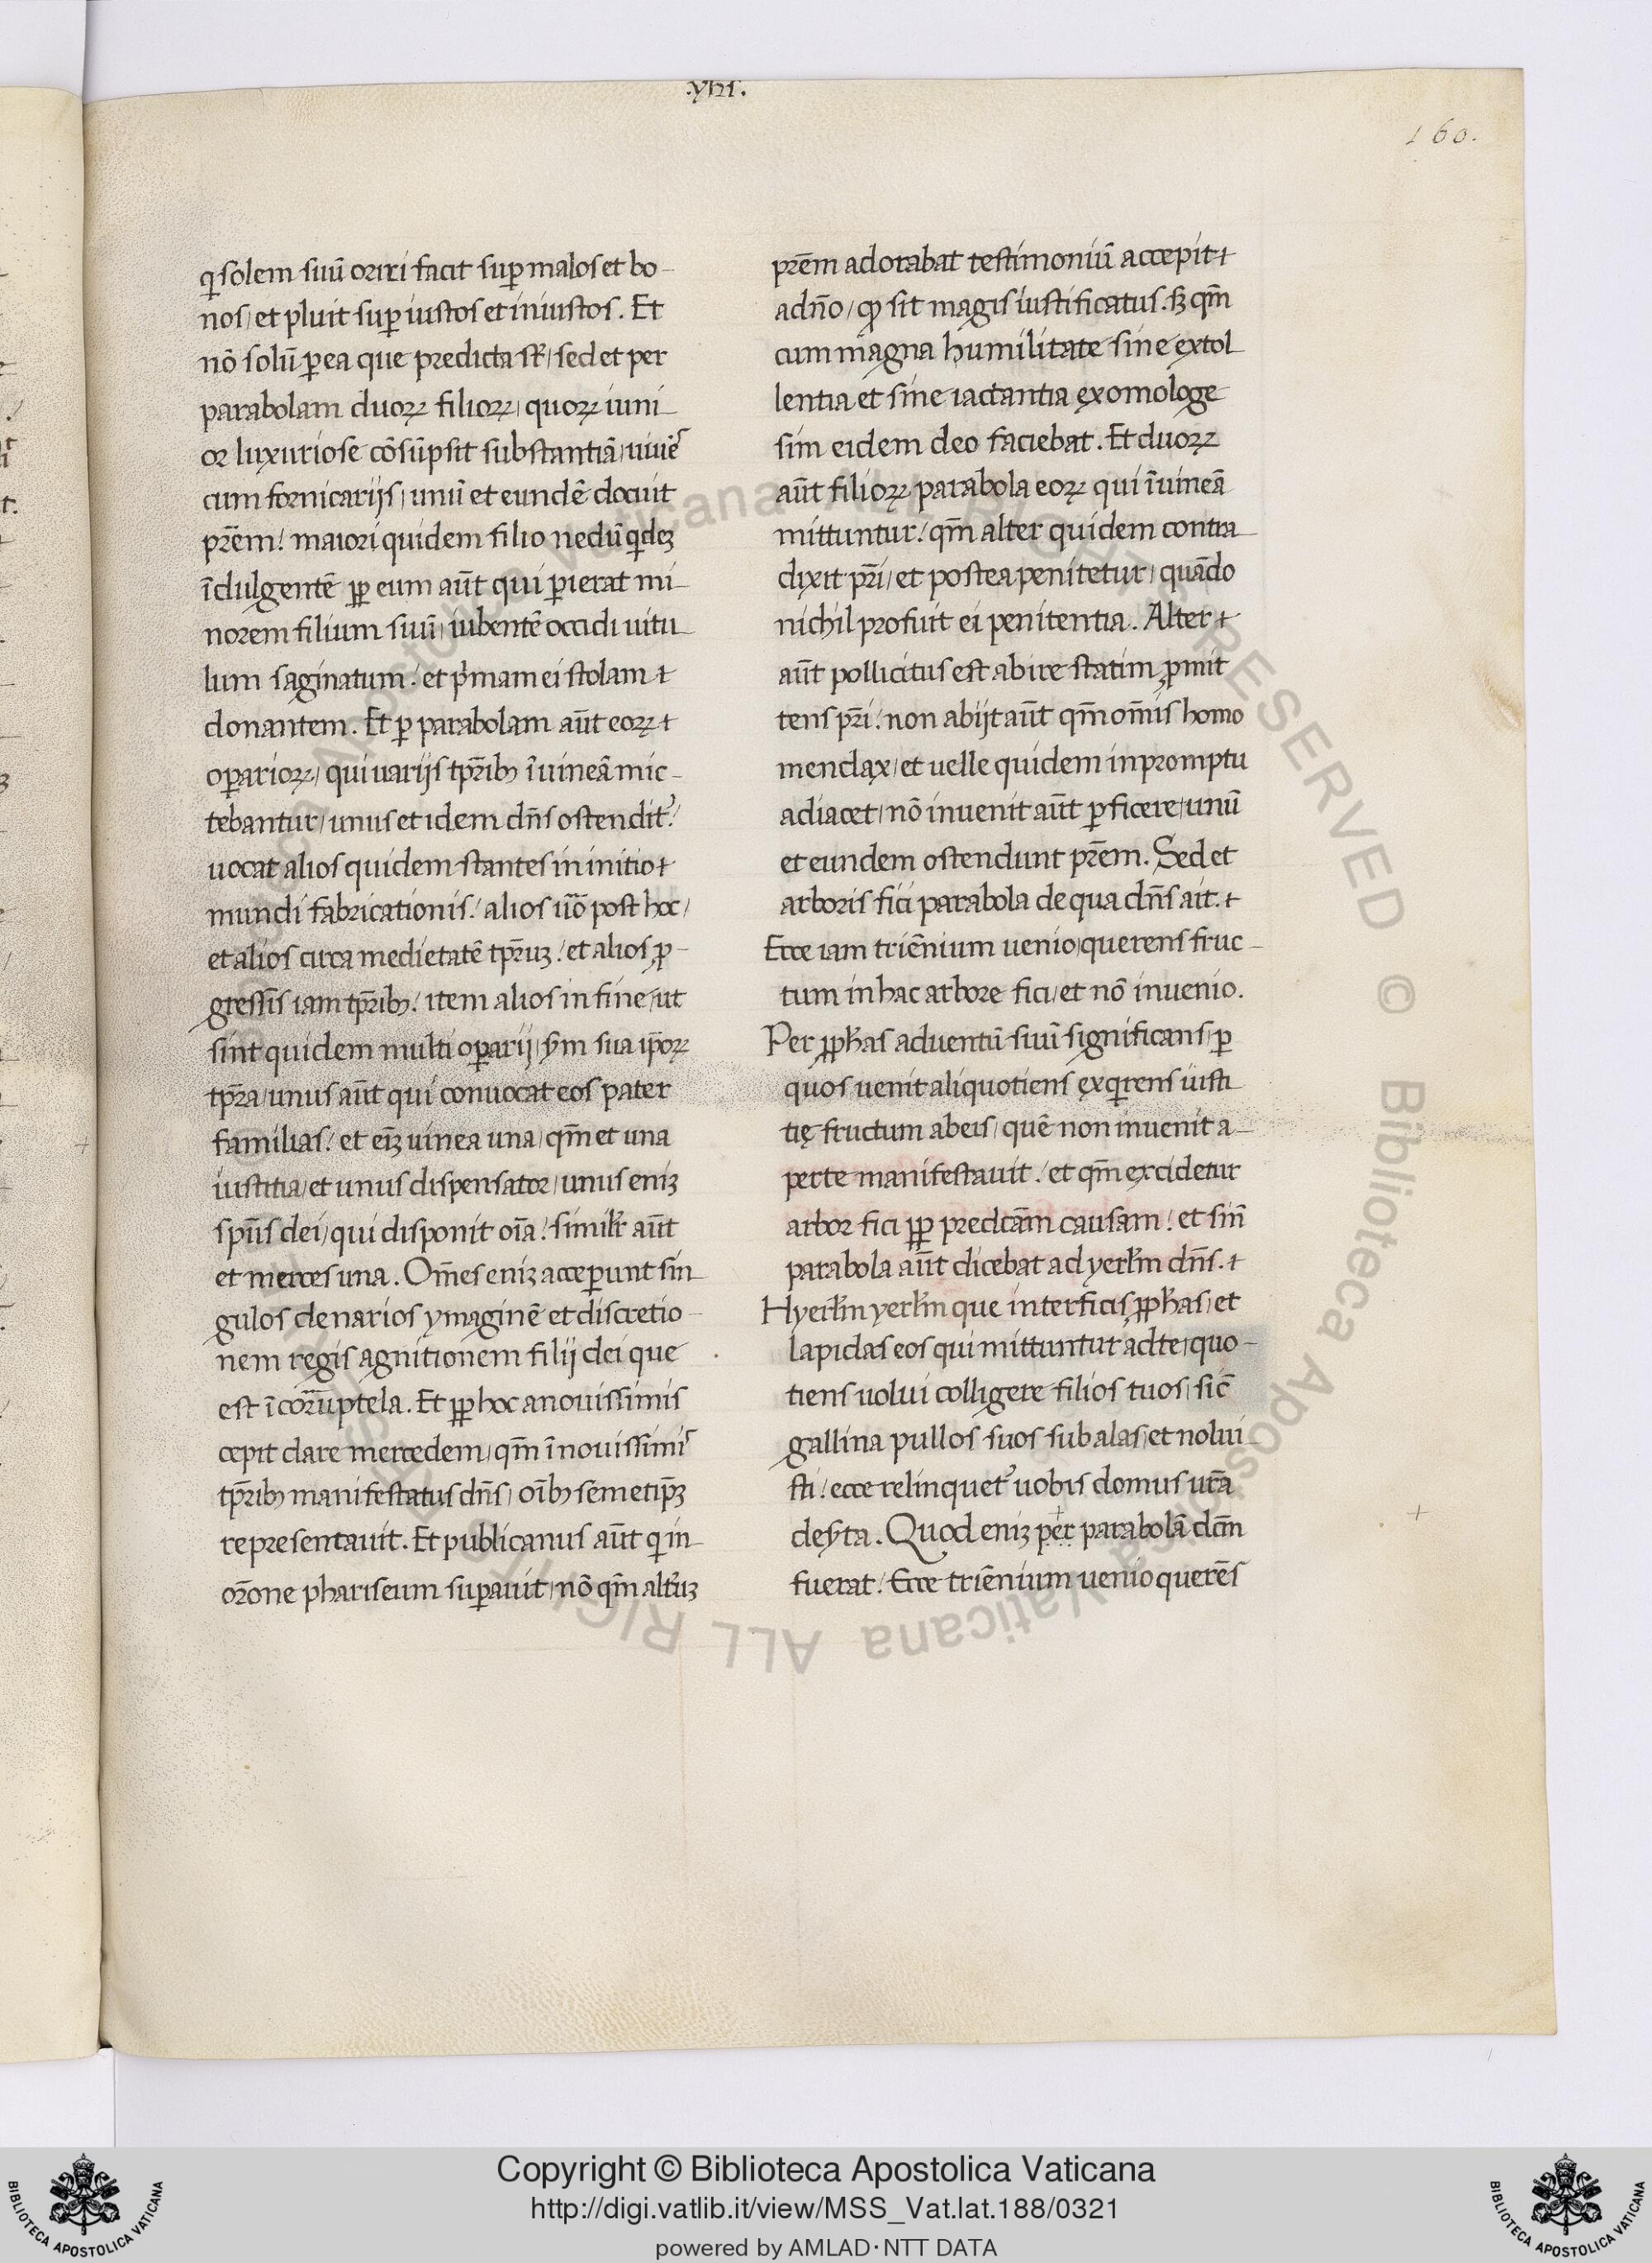 .yııı.
160.
q̇ solem suū oriri facit sup̱ malos et bo-
nos/ et pluit sup̱ iustos et iniustos. Et
nō solū p̱ ea que predicta st̄/ sed et per
parabolam duoꝝ filioꝝ/ quoꝝ iuni
or luxuriose cōsūpsit substantiā/ uiuēs
cum fornicarijs/ unū et eundē docuit
pr̄em! maiori quidem filio nedū q̇deꝫ
īdulgentē ꝓp̱ eum aūt qui p̱ierat mi
norem filium suū/ iubentē occidi uitu
lum saginatum! et ṗmam ei stolam
donantem. Et p̱ parabolam aūt eoꝝ
op̱arioꝝ/ qui uarijs tp̄ribꝫ ī uineā mic-
tebantur/ unus et idem dn̄s ostendit᷑!
uocat alios quidem stantes in initio
mundi fabricationis! alios u͞o post hoc/
et alios circa medietatē tp̄ruꝫ! et alios ꝓ-
gressis iam tp̄ribꝫ! item alios in fine/ ut
sint quidem multi op̱arij/ ẏm sua ip̄oꝝ
tp̄ra/ unus aūt qui conuocat eos pater
familias! et eīꝫ uinea una/ qm̄ et una
iustitia/ et unus dispensator/ unus eniꝫ
spūs dei/ qui disponit oīa! simil̄r aūt
et merces una. Om̄es eniꝫ accep̱unt sin
gulos denarios ymaginē et discretio-
nem regis agnitionem filij dei que
est īcorruptela. Et ꝓp̱ hoc a nouissimis
cepit dare mercedem/ qm̄ ī nouissimis
tp̄ribꝫ manifestatus dn̄s/ oībꝫ semetip̄ꝫ
representauit. Et publicanus aūt q̇ in
or̄one phariseum sup̱auit/ nō qm̄ alt᷑uꝫ
pr̄em adorabat testimoniū accepit
ad n̄o/ ꝙ sit magis iustificatus. sꝫ qm̄
cum magna humilitate sine extol
lentia et sine iactantia exomologe
sim eidem deo faciebat. Et duoꝝ
aūt filioꝝ parabola eoꝝ qui ī uineā
mittuntur! qm̄ alter quidem contra
dixit pr̄i/ et postea penitetur/ quādo
nichil profuit ei penitentia. Alter
aūt pollicitus est abire statim ꝓmit
tens pr̄i! non abijt aūt qm̄ om̄is homo
mendax/ et uelle quidem in promptu
adiacet/ nō inuenit aūt p̱ficere/ unū
et eundem ostendunt pr̄em. Sed et
arboris fici parabola de qua dn̄s ait.
Ecce iam triēnium uenio/ querens fruc-
tum in hac arbore fici/ et nō inuenio.
Per ꝓph̄as aduentū suū significans/ p̱
quos uenit aliquotiens exq̇rens iusti
tię fructum ab eis/ quē non inuenit a-
perte manifestauit! et qm̄ excidetur
arbor fici ꝓp̱ predc̄am causam! et sin̄
parabola aūt dicebat ad yerl̄m dn̄s.
Hyerl̄m yerl̄m que interficis ꝓph̄as/ et
lapidas eos qui mittuntur ad te/ quo-
tiens uolui colligere filios tuos/ sic̄
gallina pullos suos sub alas/ et nolui
sti! ecce relinquet᷑ uobis domus ur̄a
deẏta. Quod eniꝫ per parabolā dc̄m
fuerat! Ecce triēnium uenio querēs
Copyright © Biblioteca Apostolica Vaticana
http://digi.vatlib.it/view/MSS_Vat.lat.188/0321
powered by AMLAD·NTT DATA